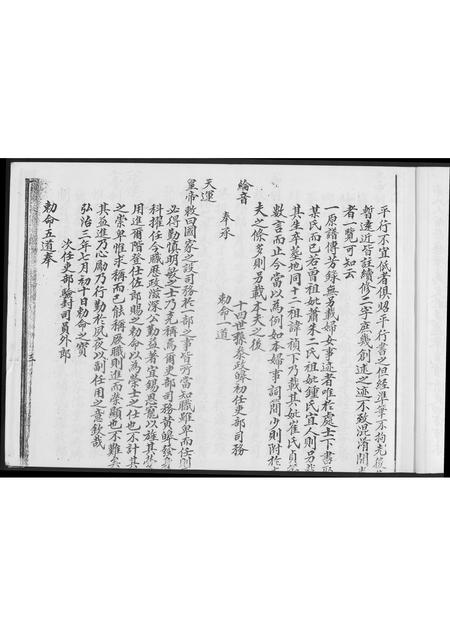 平行不宜低者俱照平行書之但經準筆不拘充後
暫遠近皆註續修二字庶幾創述之迹不致混淆閱
者一覽可知云
一原譜傳芳錄無另載婦女事迹者唯於處士下書配
某氏而已若曾祖妣蕭朱二氏祖妣鍾氏宜人則另
其生卒墓地同十二祖諱禎下乃載其妣崔氏貞
數言而止今當以為例如本婦事詞簡少則附於
夫之條多則另載本夫之後
十四世縣泰政 初任吏部司務
綸音
勅命一道
奉承
天運
皇帝敕曰國家之設司務於一部之事皆所當知職雖卑而任則
必得勤慎明敏之士乃克稱焉爾吏部司務黃 發
科擢任今職歷政滋深公勤益著宜錫恩寵以旌其
用進爾階登仕佐郎賜之勅命以為榮士之仕也不計其
之崇卑惟求稱而已能稱厥職則進而榮顯也不難矣
其益進乃心勵乃行勤於夙夜以副任用之意欽哉
弘治三年七月初十日勅命之寶
次任吏部驗封司員外郎
勅命五道奉
三